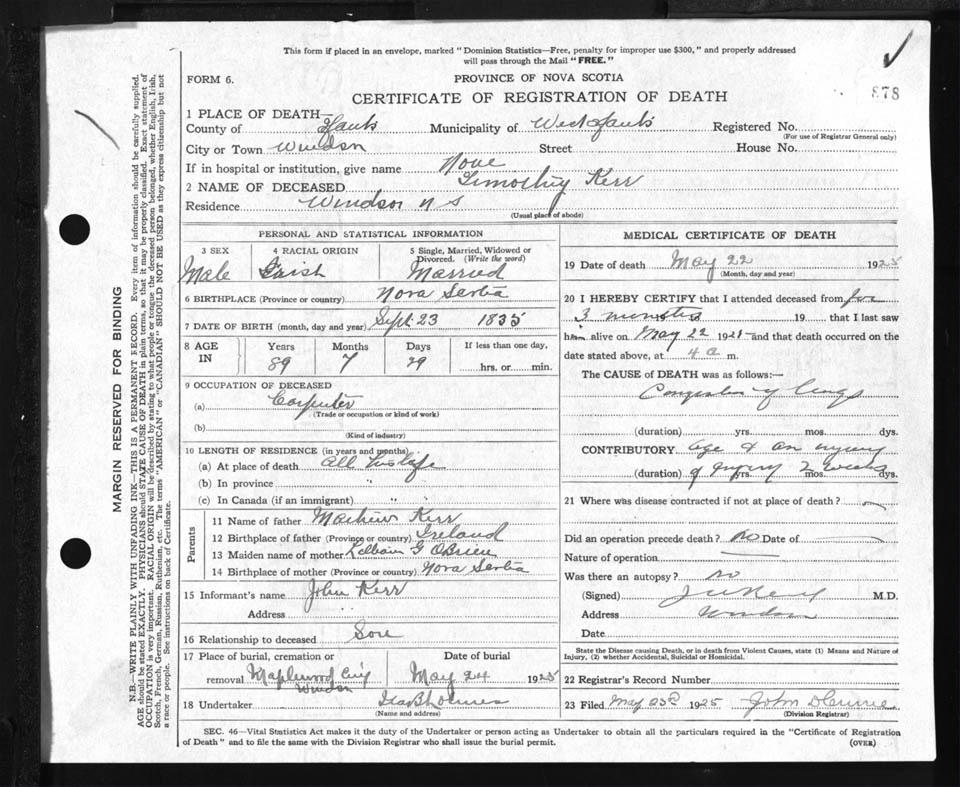 This form if placed in an envelope, marked "Dominion Statistics—Free, penalty for improper use $300," and properly addressed
will pass through the Mail "FREE."
FORM 6.
PROVINCE OF NOVA SCOTIA
CERTIFICATE OF REGISTRATION OF DEATH
878
1 PLACE OF DEATH—
County of Hants Municipality of West Hants Registered No.
(For use of Registrar General only)
City or Town Windsor Street House No.
If in hospital or institution, give name None
2 NAME OF DECEASED Timothy Kerr
Residence Windsor N S
(Usual place of abode)
PERSONAL AND STATISTICAL INFORMATION
3 SEX 4 RACIAL ORIGIN 5 Single, Married, Widowed or
Divorced. (Write the word)
Male Irish Married
6 BIRTHPLACE (Province or country) Nova Scotia
7 DATE OF BIRTH (month, day and year) Sept 23 1835
8 AGE IN Years Months Days If less than one day,
89 7 29 hrs. or min.
9 OCCUPATION OF DECEASED
(a) Carpenter
(Trade or occupation or kind of work)
(b)
(Kind of industry)
10 LENGTH OF RESIDENCE (in years and months)
(a) At place of death all his life
(b) In province "
(c) In Canada (if an immigrant) " "
Parents
11 Name of father Mathew Kerr
12 Birthplace of father (Province or country) Ireland
13 Maiden name of mother G OBrien
14 Birthplace of mother (Province or country) Nova Scotia
15 Informant's name John Kerr
Address
16 Relationship to deceased Son
17 Place of burial, cremation or Date of burial
removal Maplewood Cem May 24 1925
Windsor
18 Undertaker
(Name and address)
MEDICAL CERTIFICATE OF DEATH
19 Date of death May 22 1925
(Month, day and year)
20 I HEREBY CERTIFY that I attended deceased from for
3 minutes 19 that I last saw
him alive on May 22 1925 and that death occurred on the
date stated above, at 4 a m.
The CAUSE OF DEATH was as follows:—
Congestion of lungs
(duration) yrs. mos. dys.
CONTRIBUTORY age & an injury
(duration) of injury yrs. 2 weeks mos. dys.
21 Where was disease contracted if not at place of death?
Did an operation precede death? no Date of
Nature of operation
Was there an autopsy? no
(Signed) M.D.
Address Windsor
Date
State the Disease causing Death, or in death from Violent Causes, state (1) Means and Nature of
Injury, (2) whether Accidental, Suicidal or Homicidal.
22 Registrar's Record Number
23 Filed May 23d 1925 John
(Division Registrar)
SEC. 46—Vital Statistics Act makes it the duty of the Undertaker or person acting as Undertaker to obtain all the particulars required in the "Certificate of Registration
of Death" and to file the same with the Division Registrar who shall issue the burial permit. (OVER)
MARGIN RESERVED FOR BINDING
N.B.—WRITE PLAINLY WITH UNFADING INK—THIS IS A PERMANENT RECORD. Every item of information should be carefully supplied.
AGE should be stated EXACTLY. PHYSICIANS should STATE CAUSE OF DEATH in plain terms, so that it may be properly classified. Exact statement of
OCCUPATION is very important. RACIAL ORIGIN will be described by stating to what people or tongue the deceased person belonged, whether English, Irish,
Scotch, French, German, Russian, Ruthenian, etc. The terms "AMERICAN" or "CANADIAN" SHOULD NOT BE USED as they express citizenship but not
a race or people. See instructions on back of Certificate.